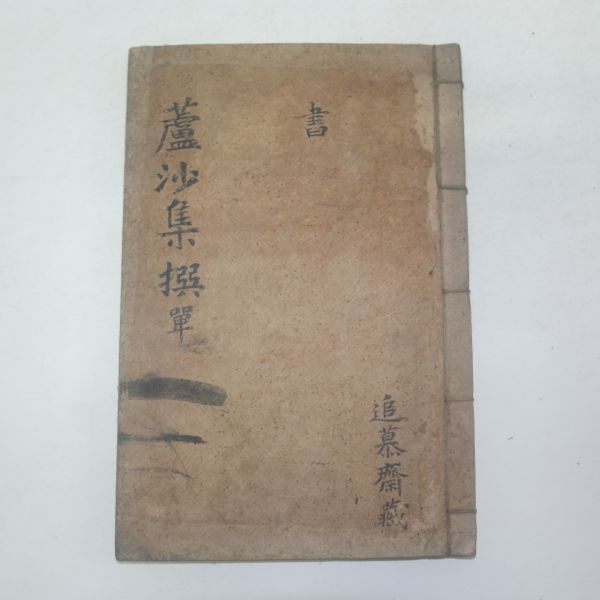 蘆沙集撰單
書
追慕齋藏